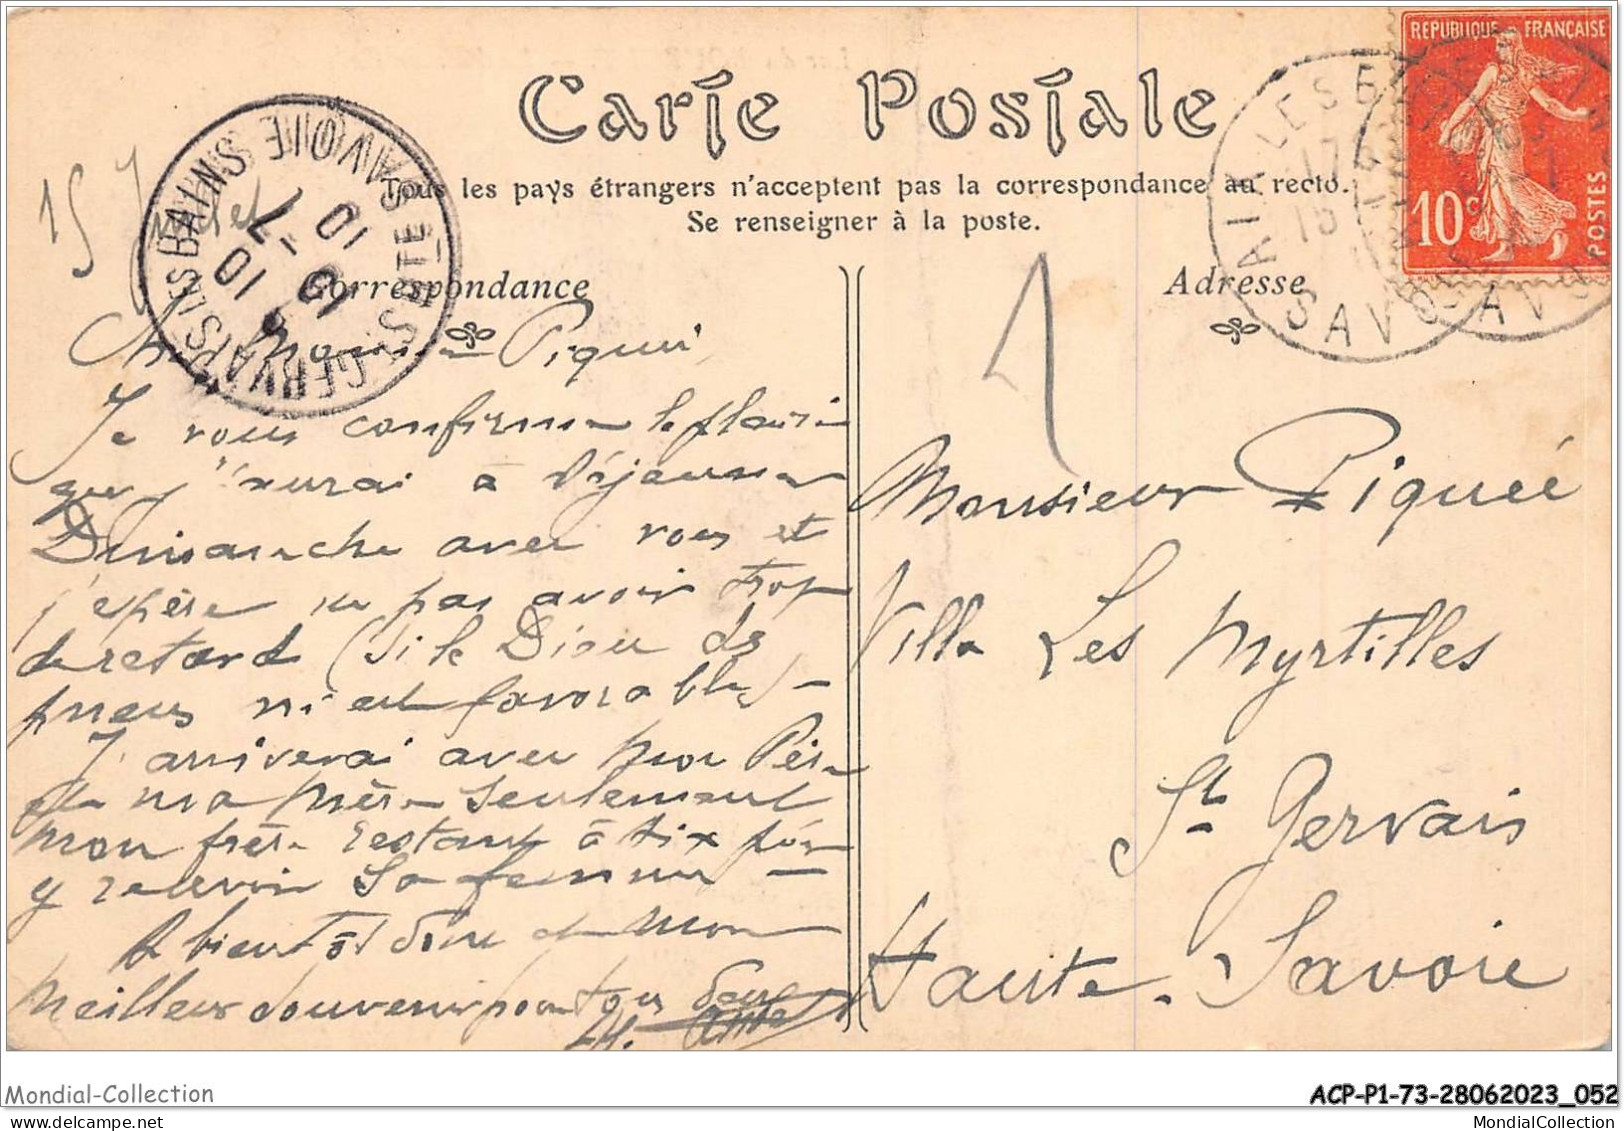 Carte Postale
Tous les pays étrangers n'acceptent pas la correspondance au recto.
Se renseigner à la poste.
REPUBLIQUE FRANÇAISE
10c
POSTES
AIX LES BAINS
SAVOIE
ST GERVAIS LES BAINS
HTE SAVOIE
10 -7
10
15
Juillet
Correspondance
Adresse
1
Cher Monsieur Piquée
Je vous confirme le plaisir
que j'aurai à déjeuner
Dimanche avec vous et
j'espère ne pas avoir trop
de retard (si le Dieu des
pneus m'est favorable) -
J'arriverai avec mon Père
et ma mère seulement
mon frère restant à Aix pour
y recevoir sa femme -
A bientôt donc et mon
meilleur souvenir pour tous
Monsieur Piquée
Villa Les Myrtilles
St Gervais
Haute-Savoie
Mondial-Collection
ACP-P1-73-28062023_052
MondialCollection